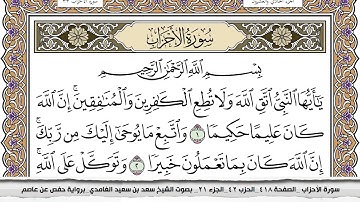 سُورَةُ الْأَحْزَابِ
بِسْمِ اللَّهِ الرَّحْمَٰنِ الرَّحِيمِ
يَٰٓأَيُّهَا ٱلنَّبِيُّ ٱتَّقِ ٱللَّهَ وَلَا تُطِعِ ٱلْكَٰفِرِينَ وَٱلْمُنَٰفِقِينَۗ إِنَّ ٱللَّهَ
كَانَ عَلِيمًا حَكِيمًا ١ وَٱتَّبِعْ مَا يُوحَىٰٓ إِلَيْكَ مِن رَّبِّكَۚ
إِنَّ ٱللَّهَ كَانَ بِمَا تَعْمَلُونَ خَبِيرًا ٢ وَتَوَكَّلْ عَلَى ٱللَّهِۚ
سورة الأحزاب _الصفحة ٤١٨_الحزب ٤٢_الجزء ٢١_ بصوت الشيخ سعد بن سعيد الغامدي_برواية حفص عن عاصم